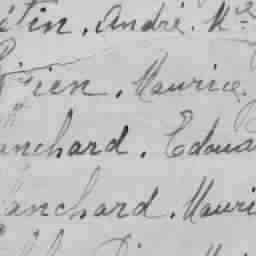 tin. André. Mel
ien. Maurice.
anchard. Edoua
lanchard. Mauri